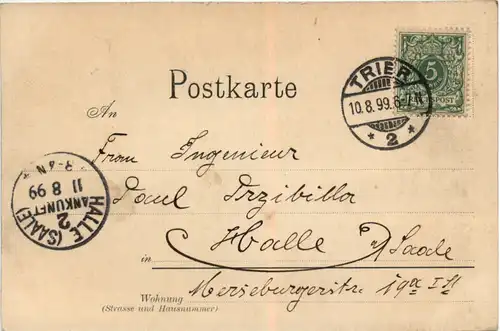 5
TRIER
10.8.99.6-7N
* 2 *
Postkarte
An
Frau Ingenieur
Paul Przibilla
in Halle a/Saale
Wohnung
(Strasse und Hausnummer)
Merseburgerstr. 19a I St
HALLE (SAALE)
2
ANKUNFT
11 8 99